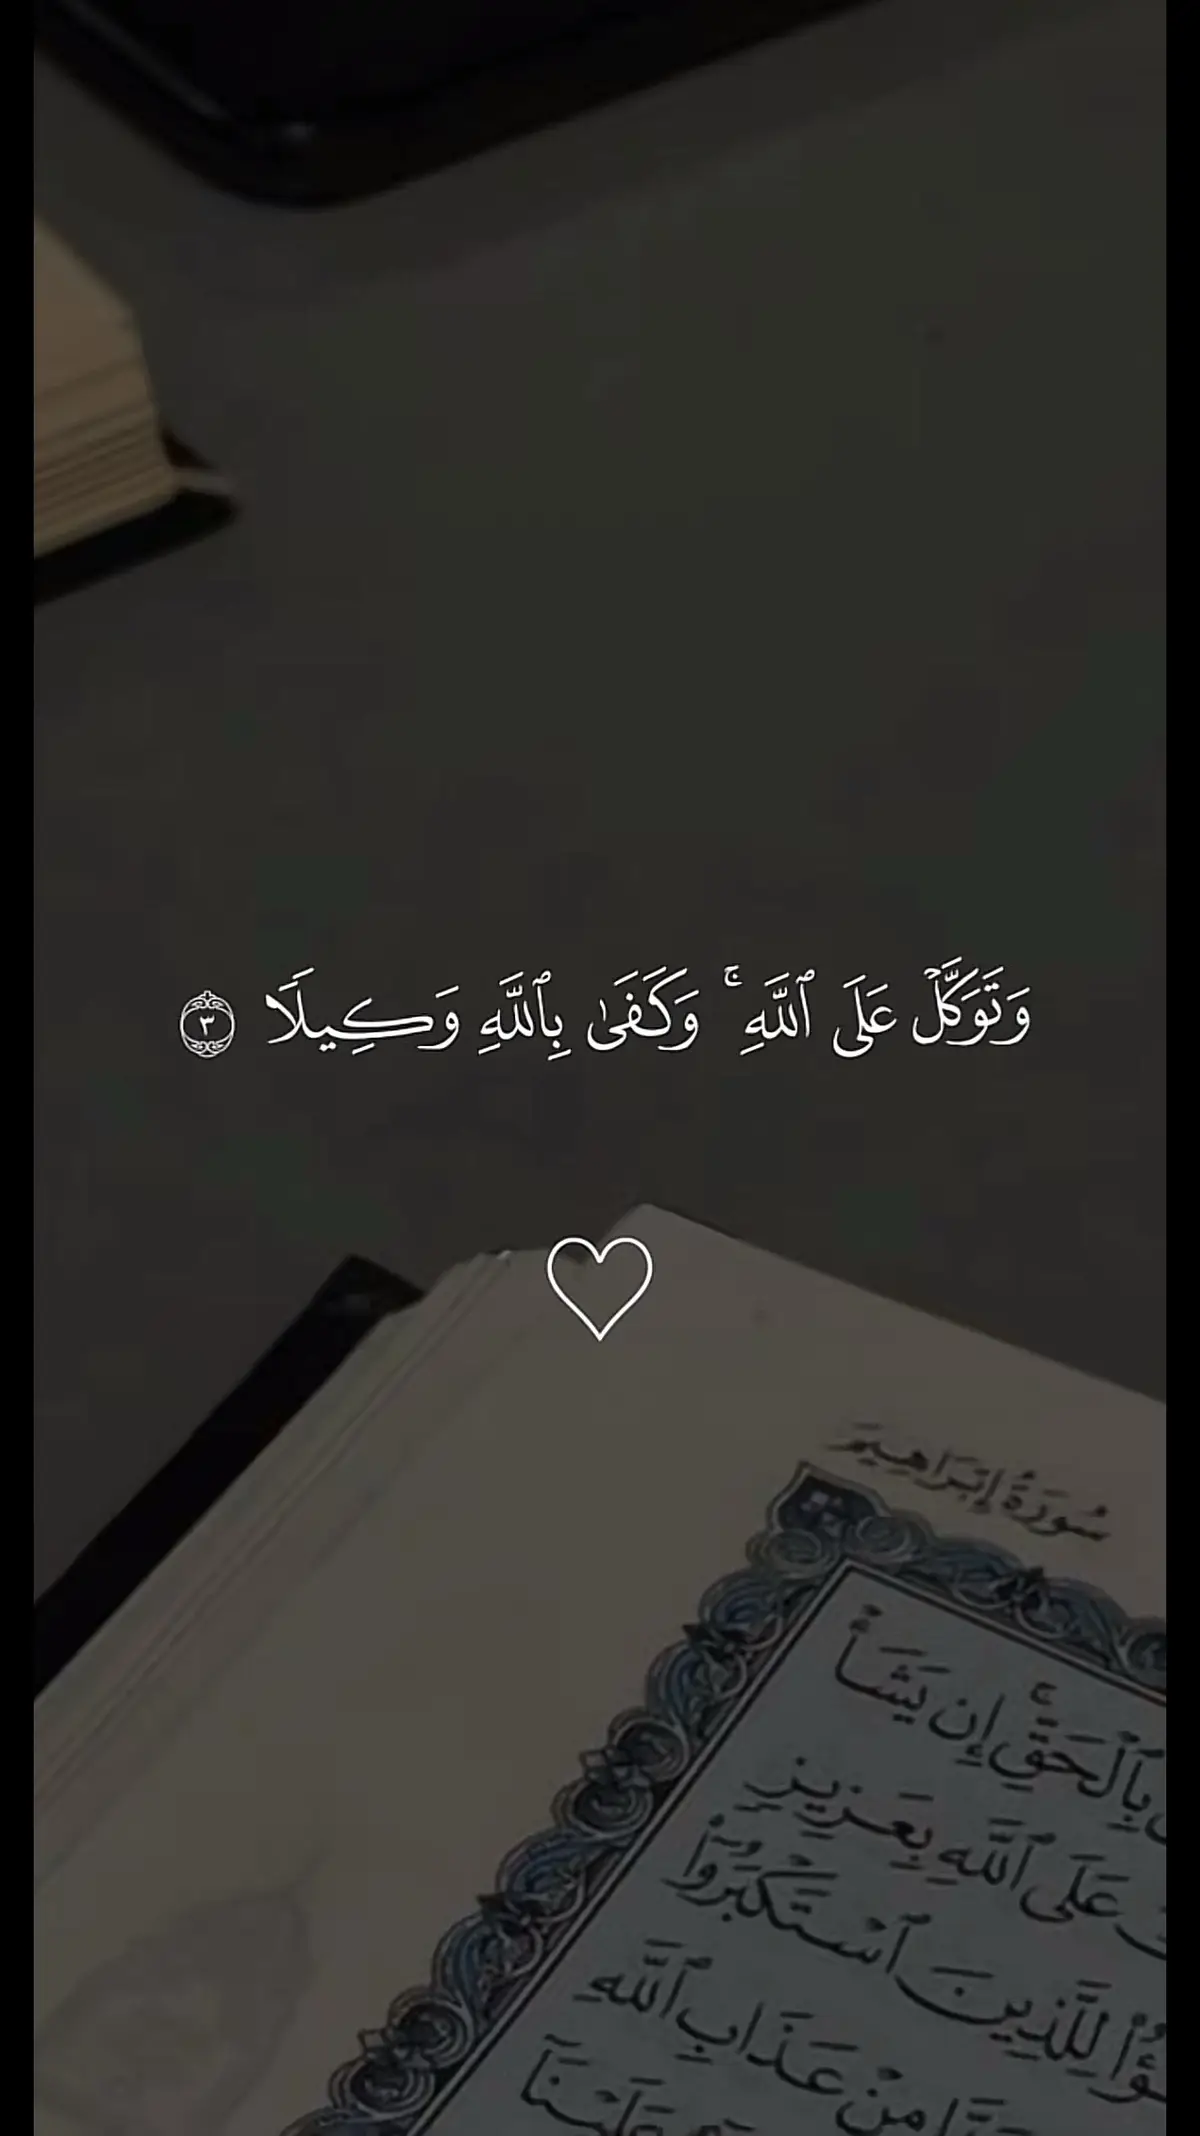 وَتَوَكَّلْ عَلَى ٱللَّهِ ۚ وَكَفَىٰ بِٱللَّهِ وَكِيلًا ٣
سُورَةُ إِبْرَاهِيمَ
بِٱلْحَقِّ ۚ إِن يَشَأْ
عَلَى ٱللَّهِ بِعَزِيزٍ
لِلَّذِينَ ٱسْتَكْبَرُوٓا۟
مِنْ عَذَابِ ٱللَّهِ
عَلَيْنَآ